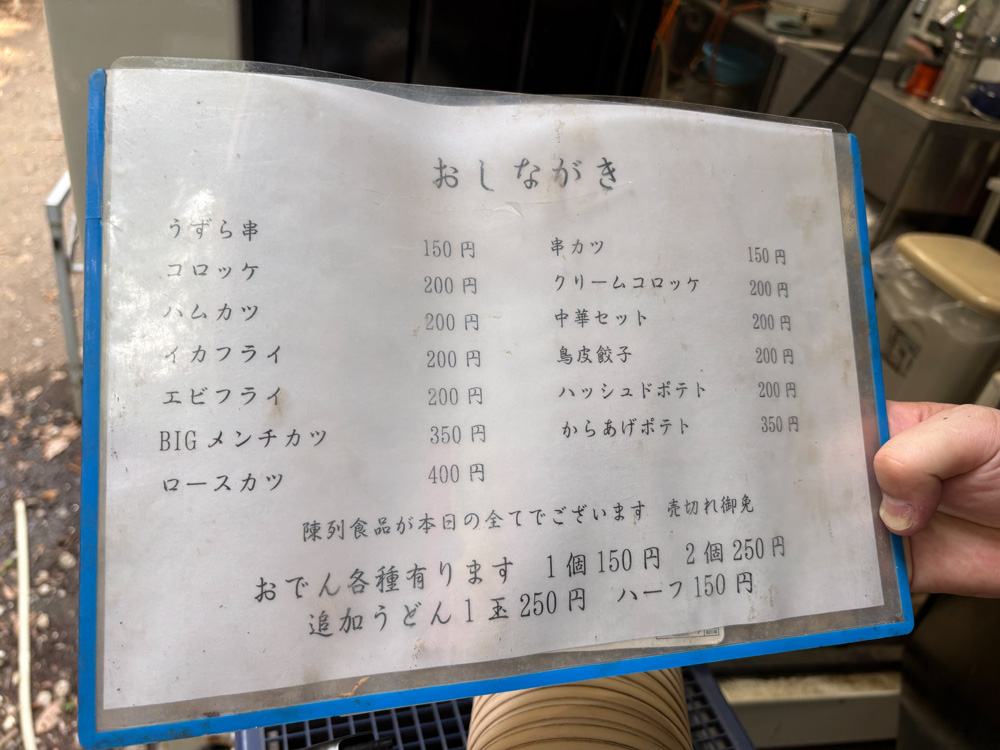 おしながき
うずら串 150円
コロッケ 200円
ハムカツ 200円
イカフライ 200円
エビフライ 200円
BIGメンチカツ 350円
ロースカツ 400円
串カツ 150円
クリームコロッケ 200円
中華セット 200円
鳥皮餃子 200円
ハッシュドポテト 200円
からあげポテト 350円
陳列食品が本日の全てでございます 売切れ御免
おでん各種有ります 1個150円 2個250円
追加うどん1玉250円 ハーフ150円